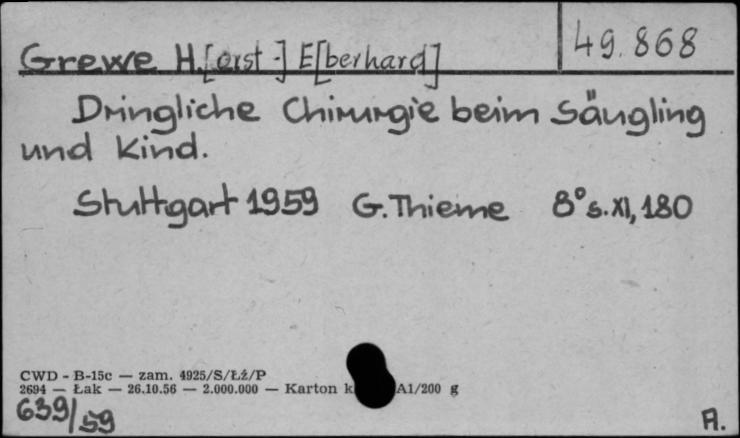 49.868
Grewe H.[orst-] E[berhard]
Dringliche Chirurgie beim Säugling
und Kind.
Stuttgart 1959 G.Thieme 8° s.XI,180
CWD - B-15c — zam. 4925/S/Łż/P
2694 — Łak — 26.10.56 — 2.000.000 — Karton k A1/200 g
639/59
A.